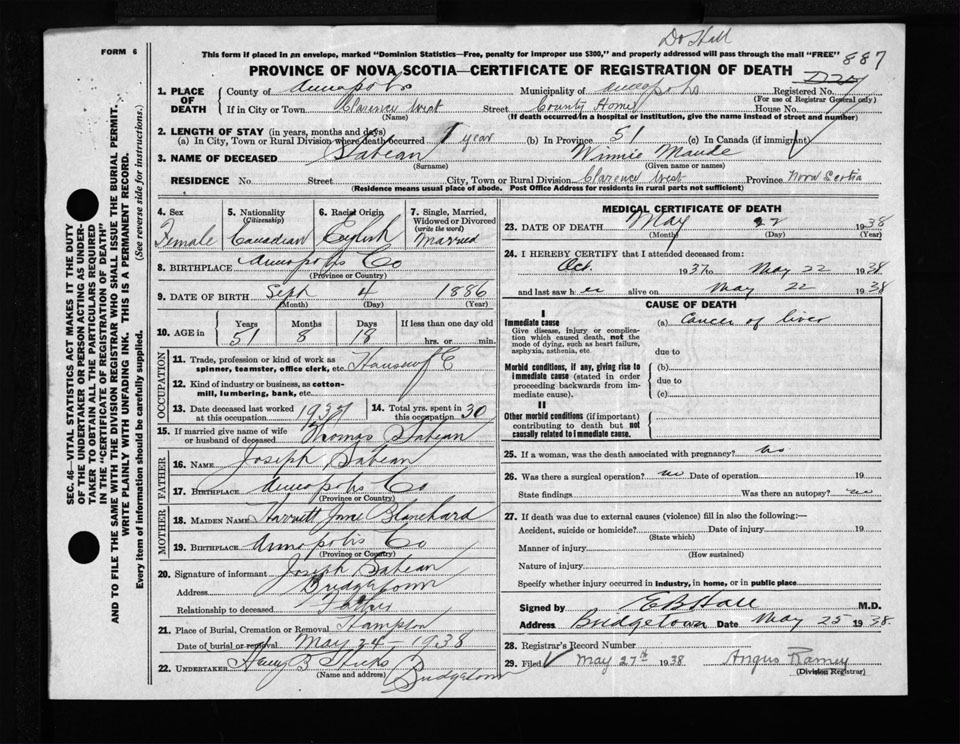 Dr Hall
FORM 6
This form if placed in an envelope, marked "Dominion Statistics—Free, penalty for improper use $300," and properly addressed will pass through the mail "FREE"
887
PROVINCE OF NOVA SCOTIA—CERTIFICATE OF REGISTRATION OF DEATH
1. PLACE OF DEATH County of Annapolis Municipality of Annapolis Registered No.
(For use of Registrar General only)
If in City or Town Clarence West Street County Home House No.
(Name) (If death occurred in a hospital or institution, give the name instead of street and number)
2. LENGTH OF STAY (in years, months and days)
(a) In City, Town or Rural Division where death occurred 1 year (b) In Province 51 (c) In Canada (if immigrant)
3. NAME OF DECEASED Sabean Winnie Maude
(Surname) (Given name or names)
RESIDENCE No. Street City, Town or Rural Division Clarence West Province Nova Scotia
(Residence means usual place of abode. Post Office Address for residents in rural parts not sufficient)
SEC. 46—VITAL STATISTICS ACT MAKES IT THE DUTY
OF THE UNDERTAKER OR PERSON ACTING AS UNDER-
TAKER TO OBTAIN ALL THE PARTICULARS REQUIRED
IN THE "CERTIFICATE OF REGISTRATION OF DEATH"
AND TO FILE THE SAME WITH THE DIVISION REGISTRAR WHO SHALL ISSUE THE BURIAL PERMIT.
WRITE PLAINLY WITH UNFADING INK. THIS IS A PERMANENT RECORD.
Every item of information should be carefully supplied. (See reverse side for instructions.)
4. Sex Female
5. Nationality (Citizenship) Canadian
6. Racial Origin English
7. Single, Married, Widowed or Divorced (write the word) Married
8. BIRTHPLACE Annapolis Co
(Province or Country)
9. DATE OF BIRTH Sept 4 1886
(Month) (Day) (Year)
10. AGE in Years 51 Months 8 Days 18 If less than one day old hrs. or min.
OCCUPATION
11. Trade, profession or kind of work as spinner, teamster, office clerk, etc. Housewife
12. Kind of industry or business, as cotton-mill, lumbering, bank, etc.
13. Date deceased last worked at this occupation 1937
14. Total yrs. spent in this occupation 30
15. If married give name of wife or husband of deceased Thomas Sabean
FATHER
16. NAME Joseph Sabean
17. BIRTHPLACE Annapolis Co
(Province or Country)
MOTHER
18. MAIDEN NAME Harriett Jane Blanchard
19. BIRTHPLACE Annapolis Co
(Province or Country)
20. Signature of informant Joseph Sabean
Address Bridgetown
Relationship to deceased Father
21. Place of Burial, Cremation or Removal Hampton
Date of burial or removal May 24 1938
22. UNDERTAKER Harry B Hicks Bridgetown
(Name and address)
MEDICAL CERTIFICATE OF DEATH
23. DATE OF DEATH May 22 1938
(Month) (Day) (Year)
24. I HEREBY CERTIFY that I attended deceased from:
Oct. 1937 to May 22 1938
and last saw her alive on May 22 1938
CAUSE OF DEATH
I
Immediate cause (a) Cancer of liver
Give disease, injury or complication which caused death, not the mode of dying, such as heart failure, asphyxia, asthenia, etc.
due to
Morbid conditions, if any, giving rise to immediate cause (stated in order proceeding backwards from immediate cause).
(b)
due to
(c)
II
Other morbid conditions (if important) contributing to death but not causally related to immediate cause.
25. If a woman, was the death associated with pregnancy? no
26. Was there a surgical operation? no Date of operation 19
State findings Was there an autopsy? no
27. If death was due to external causes (violence) fill in also the following:—
Accident, suicide or homicide? Date of injury 19
(State which)
Manner of injury
(How sustained)
Nature of injury
Specify whether injury occurred in industry, in home, or in public place
Signed by E B Hall M.D.
Address Bridgetown Date May 25 1938
28. Registrar's Record Number
29. Filed May 27th 1938 Angus Ramey
(Division Registrar)